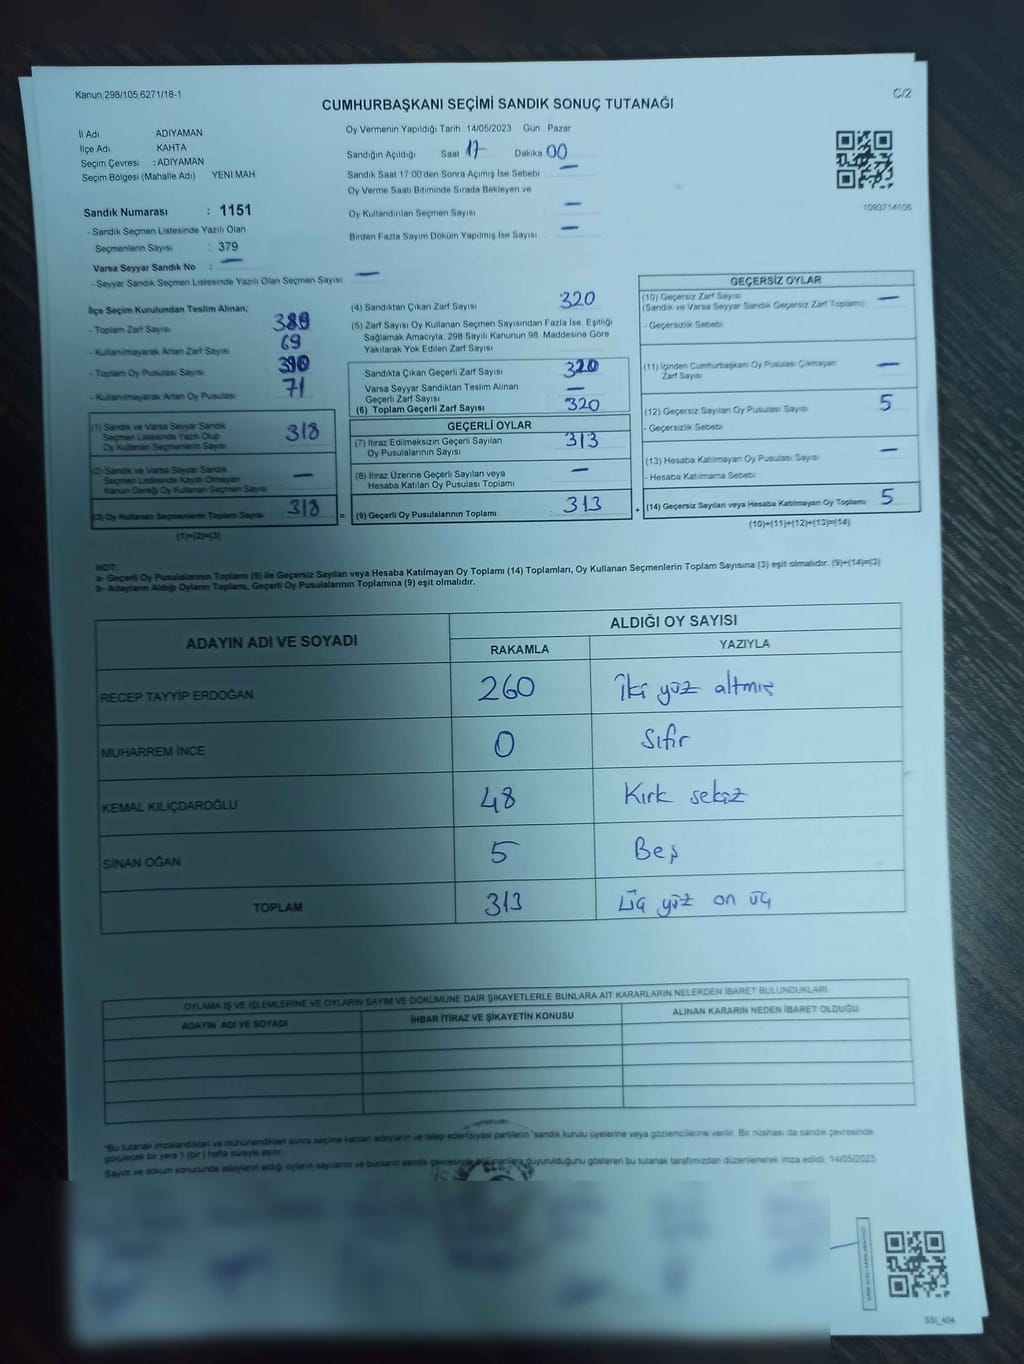 Kanun:298/105,6271/18-1
C/2
CUMHURBAŞKANI SEÇİMİ SANDIK SONUÇ TUTANAĞI
İl Adı ADIYAMAN
İlçe Adı KAHTA
Seçim Çevresi :ADIYAMAN
Seçim Bölgesi (Mahalle Adı) YENİ MAH
Oy Vermenin Yapıldığı Tarih 14/05/2023 Gün Pazar
Sandığın Açıldığı Saat 17 Dakika 00
Sandık Saat 17:00'den Sonra Açımış İse Sebebi : —
Oy Verme Saati Bitiminde Sırada Bekleyen ve
Oy Kullandırılan Seçmen Sayısı : —
Birden Fazla Sayım Döküm Yapılmış İse Sayısı : —
1093714105
Sandık Numarası : 1151
- Sandık Seçmen Listesinde Yazılı Olan
Seçmenlerin Sayısı : 379
Varsa Seyyar Sandık No : —
- Seyyar Sandık Seçmen Listesinde Yazılı Olan Seçmen Sayısı: —
İlçe Seçim Kurulundan Teslim Alınan;
- Toplam Zarf Sayısı
- Kullanılmayarak Artan Zarf Sayısı 69
- Toplam Oy Pusulası Sayısı
- Kullanılmayarak Artan Oy Pusulası 71
(1) Sandık ve Varsa Seyyar Sandık
Seçmen Listesinde Yazılı Olup
Oy Kullanan Seçmenlerin Sayısı 318
(2) Sandık ve Varsa Seyyar Sandık
Seçmen Listesinde Kayıtlı Olmayan
Kanun Gereği Oy Kullanan Seçmen Sayısı —
(3) Oy Kullanan Seçmenlerin Toplam Sayısı 318
(1)+(2)=(3)
(4) Sandıktan Çıkan Zarf Sayısı 320
(5) Zarf Sayısı Oy Kullanan Seçmen Sayısından Fazla İse, Eşitliği
Sağlamak Amacıyla; 298 Sayılı Kanunun 98. Maddesine Göre
Yakılarak Yok Edilen Zarf Sayısı
Sandıkta Çıkan Geçerli Zarf Sayısı 320
Varsa Seyyar Sandıktan Teslim Alınan
Geçerli Zarf Sayısı —
(6) Toplam Geçerli Zarf Sayısı 320
GEÇERLİ OYLAR
(7) İtiraz Edilmeksizin Geçerli Sayılan
Oy Pusulalarının Sayısı 313
(8) İtiraz Üzerine Geçerli Sayılan veya
Hesaba Katılan Oy Pusulası Toplamı —
= (9) Geçerli Oy Pusulalarının Toplamı 313
GEÇERSİZ OYLAR
(10) Geçersiz Zarf Sayısı —
(Sandık ve Varsa Seyyar Sandık Geçersiz Zarf Toplamı)
- Geçersizlik Sebebi
(11) İçinden Cumhurbaşkanı Oy Pusulası Çıkmayan
Zarf Sayısı —
(12) Geçersiz Sayılan Oy Pusulası Sayısı 5
- Geçersizlik Sebebi
(13) Hesaba Katılmayan Oy Pusulası Sayısı —
- Hesaba Katılmama Sebebi
+ (14) Geçersiz Sayılan veya Hesaba Katılmayan Oy Toplamı 5
(10)+(11)+(12)+(13)=(14)
NOT:
a- Geçerli Oy Pusulalarının Toplamı (9) ile Geçersiz Sayılan veya Hesaba Katılmayan Oy Toplamı (14) Toplamları, Oy Kullanan Seçmenlerin Toplam Sayısına (3) eşit olmalıdır. (9)+(14)=(3)
b- Adayların Aldığı Oyların Toplamı, Geçerli Oy Pusulalarının Toplamına (9) eşit olmalıdır.
ADAYIN ADI VE SOYADI
ALDIĞI OY SAYISI
RAKAMLA YAZIYLA
RECEP TAYYİP ERDOĞAN 260 iki yüz altmış
MUHARREM İNCE 0 Sıfır
KEMAL KILIÇDAROĞLU 48 Kırk sekiz
SİNAN OĞAN 5 Beş
TOPLAM 313 Üç yüz on üç
OYLAMA İŞ VE İŞLEMLERİNE VE OYLARIN SAYIM VE DÖKÜMÜNE DAİR ŞİKAYETLERLE BUNLARA AİT KARARLARIN NELERDEN İBARET BULUNDUKLARI
ADAYIN ADI VE SOYADI İHBAR İTİRAZ VE ŞİKAYETİN KONUSU ALINAN KARARIN NEDEN İBARET OLDUĞU
"Bu tutanak imzalandıktan ve mühürlendikten sonra seçime katılan adayların ve talep eden siyasi partilerin "sandık kurulu üyelerine veya gözlemcilerine verilir. Bir nüshası da sandık çevresinde
görülecek bir yere 1 (bir ) hafta süreyle asılır.
Sayım ve döküm sonucunda adayların aldığı oyların sayılarını ve bunların sandık çevresinde bulunanlara duyurulduğunu gösteren bu tutanak tarafımızdan düzenlenerek imza edildi. 14/05/2023
SSİ_404